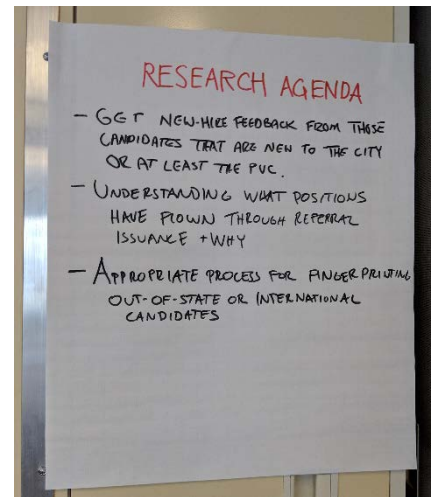 RESEARCH AGENDA
- GET NEW-HIRE FEEDBACK FROM THOSE
CANDIDATES THAT ARE NEW TO THE CITY
OR AT LEAST THE PUC.
- UNDERSTANDING WHAT POSITIONS
HAVE FLOWN THROUGH REFERRAL
ISSUANCE + WHY
- APPROPRIATE PROCESS FOR FINGERPRINTING
OUT-OF-STATE OR INTERNATIONAL
CANDIDATES